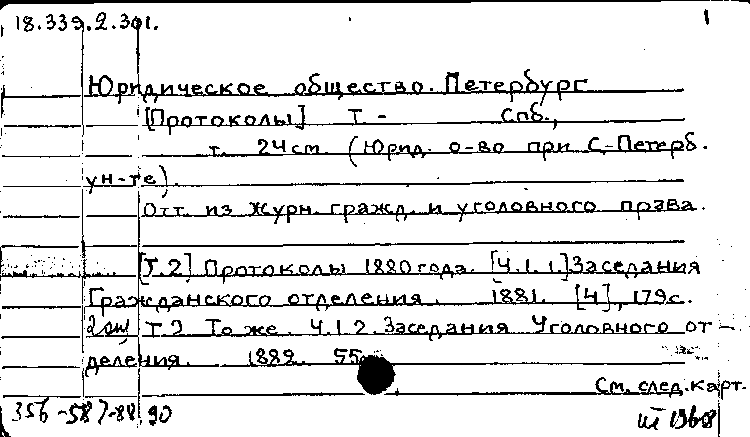 18.339.2.301. 1
Юридическое общество. Петербург
[Протоколы] Т. - Спб.,
т. 24 см. (Юрид. о-во при С.-Петерб.
ун-те).
Отт. из журн. гражд. и уголовного права.
[Т.2] Протоколы 1880 года. [Ч.1.1.] Заседания
Гражданского отделения. 1881. [4], 179 с.
Т.2 То же. Ч.1.2. Заседания Уголовного от
деления. 1882. 55
См. след. карт.
356-587-88 90 III 1968